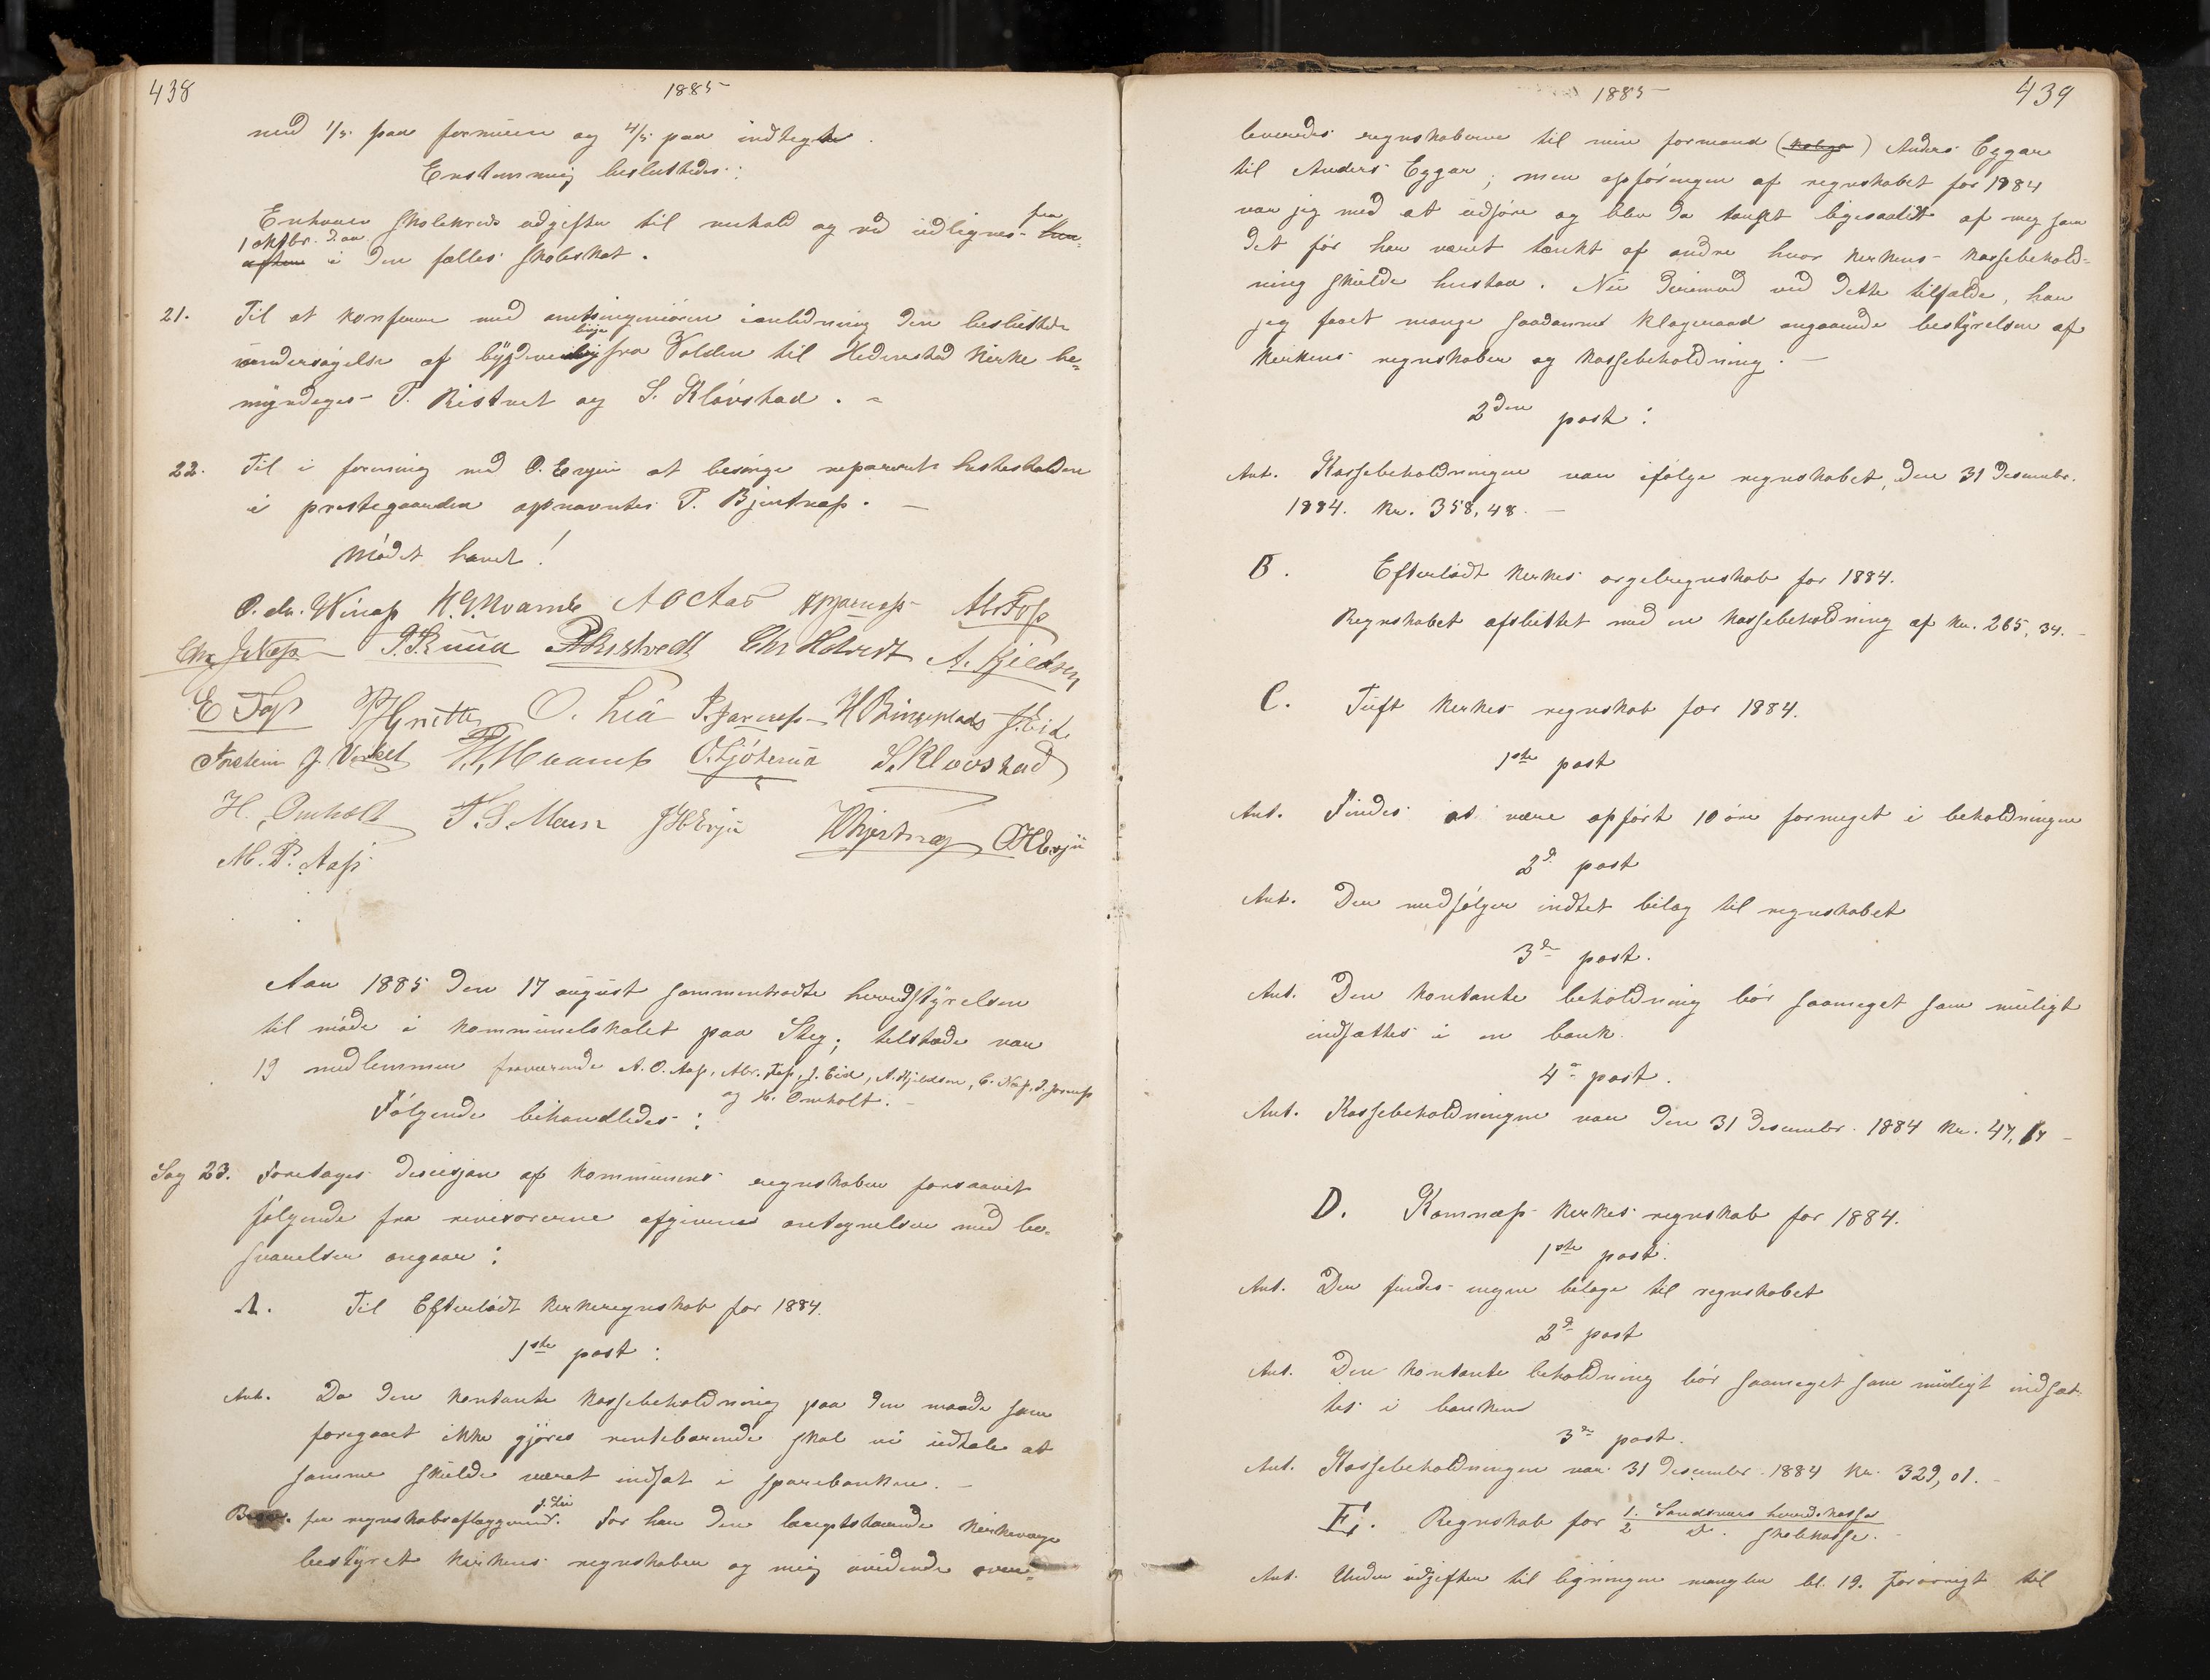 438
1885
med 1/5 paa formuen og 4/5 paa indtegte.
Enstemmig besluttedes:
Enhver skolekreds udgifter til vedhold og ved udlignes fra her-
1 oktbr. d. aa
efter i den fælles skoleskat.
21. Til at konferere med amtsingeniøren i anledning den besluttede
linje
undersøgelse af bygdevei fra Volden til Hedenstad kirke be-
myndiges T. Ristvet og S. Kløvstad.
22. Til i forening med O. Evju at besørge repareret hestestalden
i prestegaarden opnævntes T. Bjertnæs.
Mødet hævet!
A O Aas Abr. Foss
Chr. J. Næss Chr Holtvedt A. Kjeldsen
E Foss O. Lia J. Jarnæss H Ringsplads J. Eid
Torstein J. Verket S. Kløvstad
H. Omholt T. S. Moen J H Evju H Bjertnæs O H Evju
M. P. Aass
Aar 1885 den 17 august sammentraadte herredstyrelsen
til møde i kommunelokalet paa Steg; tilstæde var
19 medlemmer fraværende A. O. Aas, Abr. Foss, J. Eid, A. Kjeldsen, C. Næss, J. Jarnæss
og H. Omholt.
Følgende behandledes:
Sag 23. Foretages desisjon af kommunens regnskaber forsaavit
følgende fra revisorerne afgivne antegnelser med be-
svarelser angaar:
A. Til Efterlødt kerkeregnskab for 1884.
1ste post:
Ant. Da den kontante kassebeholdning paa den maade som
foregaaet ikke gjøres rentebærende skal vi udtale at
samme skulde været indsat i sparebanken.
J. Lia
Besv. fra regnskabsaflæggerne. Før har den længstlevende kirkeværge
bestyret kirkens regnskaber og mig uvidende over-
1885
439
leveredes regnskaberne til min formand (kolega) Anders Eggar
til Anders Eggar; men opføringen af regnskabet for 1884
var jeg med at udføre og blev da tænkt ligesaalidt af meg som
det før har været tænkt af andre hvor kerkens kassebehold-
ning skulde henstaa. Nu derimod ved dette tilfælde, har
jeg faaet mange saadanne klageraad angaaende bestyrelsen af
kerkens regnskaber og kassebeholdning.
2den post:
Ant. Kassebeholdningen var ifølge regnskabet, den 31 desember.
1884. Kr. 358,48.
B. Efterlødt kerkes orgelregnskab for 1884.
Regnskabet afsluttet med en kassebeholdning af kr. 265,34.
C. Tuft kerkes regnskab for 1884.
1ste post
Ant. Findes at være opført 10 øre formeget i beholdningen
2d post
Ant. Der medfølger indtet bilag til regnskabet
3de post.
Ant. Den kontante beholdning bør saameget som muligt
indsættes i en bank.
4de post.
Ant. Kassebeholdningen var den 31 desember 1884 kr. 47,
D. Komnæs kerkes regnskab for 1884.
1ste post.
Ant. Der findes ingen bilage til regnskabet
2d post
Ant. Den kontante beholdning bør saameget som muligt indsæt-
tes i banken
3de post.
Ant. Kassebeholdningen var 31 desember 1884 kr. 329,01.
E. Regnskab for 1. Sandsværs herredskasse
2 d. skolekasse.
Ant. Under udgifter til ligningen mangler bl. 19. Forøvrigt til